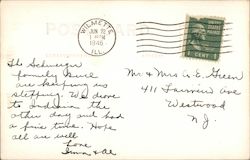 POST CARD
WILMETTE
JUN 12
1 PM
1946
ILL.
1 CENT 1
The
family sure
are keeping us
stepping. We drove
to Indiana the
other day and had
a fine time. Hope
all are well
Love
& Al
Mr & Mrs G. E. Green
411 Ave
Westwood
N.J.